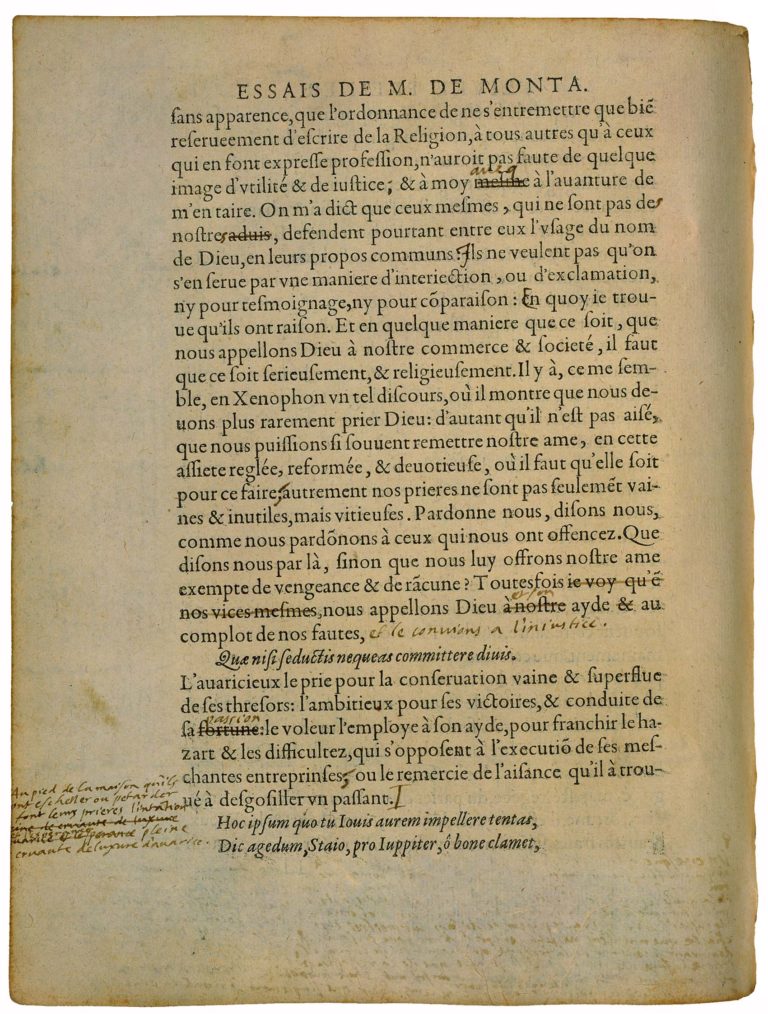 ESSAIS DE M. DE MONTA.
ſans apparence, que l'ordonnance de ne s'entremettre que biẽ
reſerueement d'eſcrire de la Religion, à tous autres qu'à ceux
qui en font expreſſe profeſſion, n'auroit pas faute de quelque
aueq
image d'vtilité & de iuſtice; & à moy meſme à l'auanture de
m'en taire. On m'a dict que ceux meſmes, qui ne ſont pas des
noſtres aduis, defendent pourtant entre eux l'vſage du nom
de Dieu, en leurs propos communs: Ils ne veulent pas qu'on
s'en ſerue par vne maniere d'interiection, ou d'exclamation,
ny pour teſmoignage, ny pour cõparaiſon: En quoy ie trou-
ue qu'ils ont raiſon. Et en quelque maniere que ce ſoit, que
nous appellons Dieu à noſtre commerce & ſocieté, il faut
que ce ſoit ſerieuſement, & religieuſement. Il y à, ce me ſem-
ble, en Xenophon vn tel diſcours, où il montre que nous de-
uons plus rarement prier Dieu: d'autant qu'il n'eſt pas aiſé,
que nous puiſſions ſi ſouuent remettre noſtre ame, en cette
aſſiete reglée, reformée, & deuotieuſe, où il faut qu'elle ſoit
pour ce faire; autrement nos prieres ne ſont pas ſeulemẽt vai-
nes & inutiles, mais vitieuſes. Pardonne nous, diſons nous,
comme nous pardõnons à ceux qui nous ont offencez. Que
diſons nous par là, ſinon que nous luy offrons noſtre ame
exempte de vengeance & de rãcune? Toutesfois ie voy qu'ẽ
et ſon
nos vices meſmes, nous appellons Dieu à noſtre ayde & au
complot de nos fautes, et le conuions a l'iniuſtice.
Quæ niſi ſeductis nequeas committere diuis.
L'auaricieux le prie pour la conſeruation vaine & ſuperflue
de ſes threſors: l'ambitieux pour ſes victoires, & conduite de
paſſion
ſa fortune: le voleur l'employe à ſon ayde, pour franchir le ha-
zart & les difficultez, qui s'oppoſent à l'executiõ de ſes meſ-
chantes entreprinſes, ou le remercie de l'aiſance qu'il à trou-
ué à deſgoſiller vn paſſant.
Au pied de la maison qu'ils
vont escheller ou petarder
font leurs prieres l'intantion
et l'esperance pleine
cruauté de luxure d'auarice.
Hoc ipſum quo tu Iouis aurem impellere tentas,
Dic agedum, Staio, pro Iuppiter, ô bone clamet,